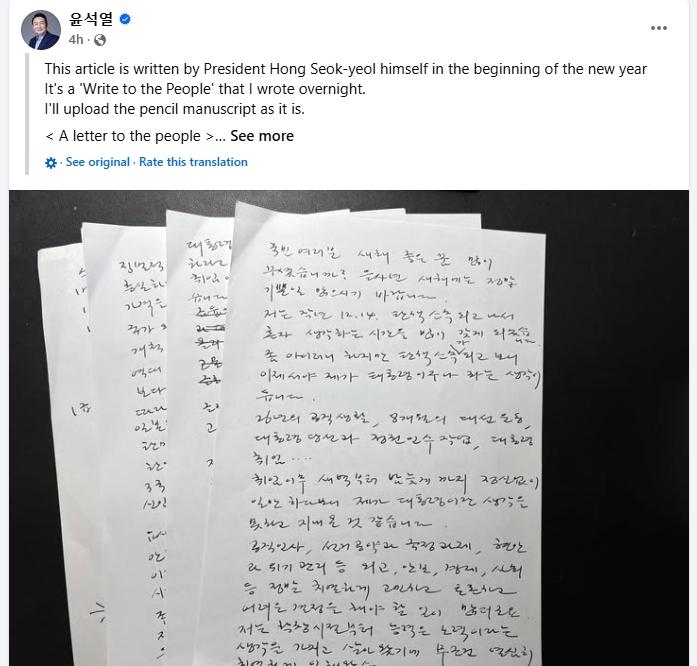 윤석열
4h
This article is written by President Hong Seok-yeol himself in the beginning of the new year
It's a 'Write to the People' that I wrote overnight.
I'll upload the pencil manuscript as it is.
< A letter to the people >... See more
· See original · Rate this translation
국민 여러분 새해 좋은 꿈 많이
꾸셨습니까? 을사년 새해에는 정말
기쁜일 많으시기 바랍니다.
저는 작년 12.14. 탄핵소추 되고 나서
혼자 생각하는 시간을 많이 갖게 되었습니다.
좀 아이러니 하지만 탄핵소추가 되고 보니
이제서야 제가 대통령이구나 하는 생각이
듭니다.
26년의 공직생활, 8개월의 대선 운동,
대통령 당선과 정권 인수 작업, 대통령
취임....
취임이후 새벽부터 밤늦게 까지 정신없이
일만 하다보니 제가 대통령이란 생각을
못하고 지내온 것 같습니다.
공직인사, 선거공약과 국정과제, 현안
과 위기 관리 등 외교, 안보, 경제, 사회
등 정말 치열하게 고민하고 토론하고
어려운 결정을 해야 할 일이 많더군요.
저는 학창시절부터 능력은 노력이라는
생각을 가지고 살아 왔기에 무조건 열심히
대통령
하라고
취임
습니다
집번적
충실하
가격은
국가
개척
역대
보다
따라
일본